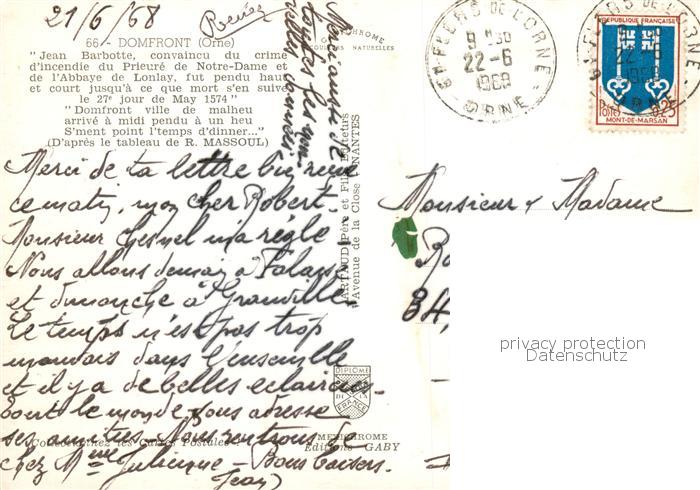 21/6/68
66. - DOMFRONT (Orne)
"Jean Barbotte, convaincu du crime
d'incendie du Prieuré de Notre-Dame et
de l'Abbaye de Lonlay, fut pendu haut
et court jusqu'à ce que mort s'en suive
le 27e jour de May 1574"
"Domfront ville de malheu
arrivé à midi pendu à un heu
S'ment point l'temps d'dinner..."
(D'après le tableau de R. MASSOUL)
Merci de ta lettre bien reçue
ce matin, mon cher Robert.
Monsieur Chesnel m'a réglé
Nous allons demain à Falaise
et dimanche à Granville
Le temps n'est pas trop
mauvais dans l'ensemble
et il y a de belles eclaircies.
Tout le monde vous adresse
ses amitiés. Nous rentrons
Collectionnez les Cartes Postales
chez Mme Julienne - Bons baisers.
Jean
COULEURS NATURELLES
ARTAUD Père et Fils, Éditeurs
Avenue de la Close NANTES
DIPLOME
DE LA
FRANCE
METROCHROME
Editions GABY
61 FLERS DE L'ORNE
9H30
22-6
1968
ORNE
REPUBLIQUE FRANÇAISE
POSTES 0,25
MONT-DE-MARSAN
Monsieur & Madame
34,
privacy protection
Datenschutz